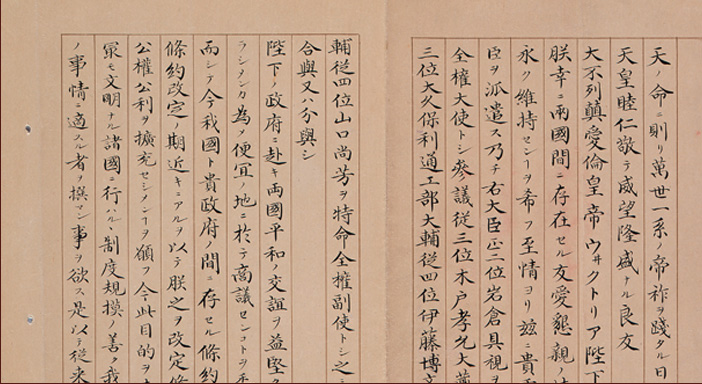 天ノ命ニ則リ萬世一系ノ帝祚ヲ踐タル日
天皇睦仁敬テ威望隆盛ナル良友
大不列顛愛倫皇帝ウ井クトリア陛下
朕幸ニ兩國間ニ存在セル友愛懇親ノ
永ク維持センヿヲ希フ至情ヨリ玆ニ貴
臣ヲ派遣ス乃チ右大臣正二位岩倉具視ヲ
全權大使トシ參議従三位木戸孝允大藏
三位大久保利通工部大輔従四位伊藤博文
輔従四位山口尚芳ヲ特命全權副使トシ之ニ
合與又ハ分與シ
陛下ノ政府ニ赴キ両國平和ノ交誼ヲ益堅ク
ラシメンカ為メ便宜ノ地ニ於テ商議センコトヲ
而シテ今我國ト貴政府ノ間ニ存セル條約
條約改定ノ期近キニアルヲ以テ朕之ヲ改定
公權公利ヲ擴充セシメンヿヲ願フ今此目的ヲ
最モ文明ナル諸國ニ行ハルヽ制度規摸ノ善ク我
ノ事情ニ適スル者ヲ撰マン事ヲ欲ス是以テ従来